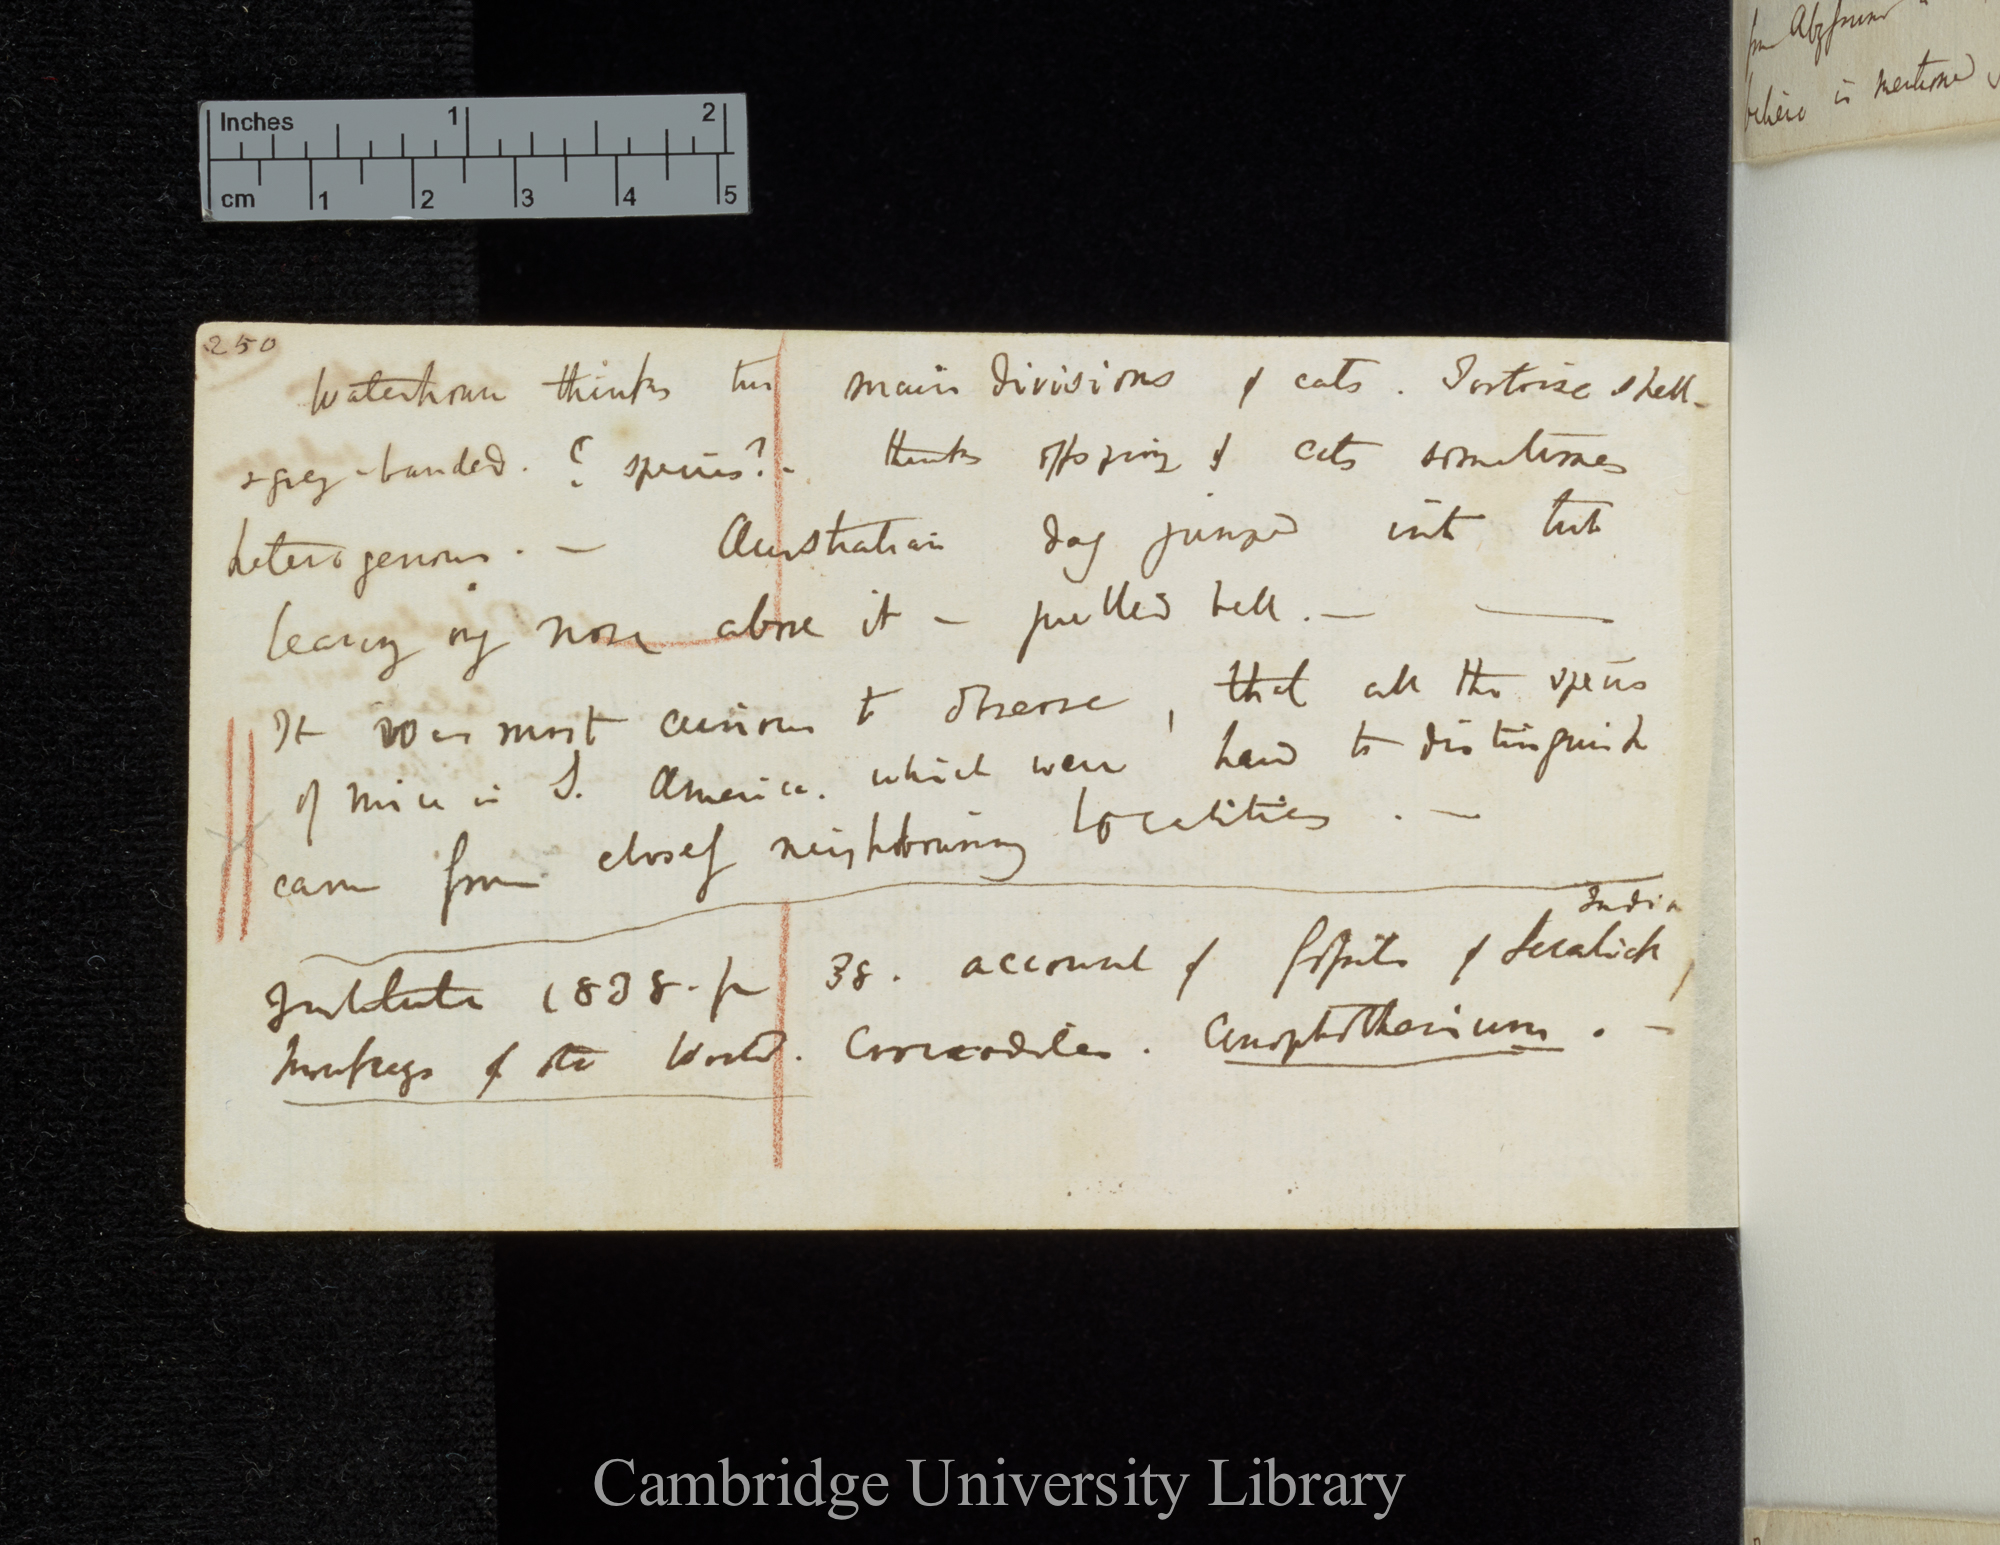 Inches 1 2
cm 1 2 3 4 5
250
Waterhouse thinks two main divisions of cats. Tortoise shell –
& grey-banded. ? species? – thinks offspring of cats sometimes
heterogenous. — Australian dog jumped into tub
leaving only nose above it – pulled tell. —
It was most curious to observe, that all the species
of mice in S. America. which were hard to distinguish
came from closely neighbouring localities. —
India
Institute 1838. p 38. account of fossils of Sevalick,
Monkeys of old World. Crocodiles. Anophotherium. —
from
believe is mentioned
Cambridge University Library